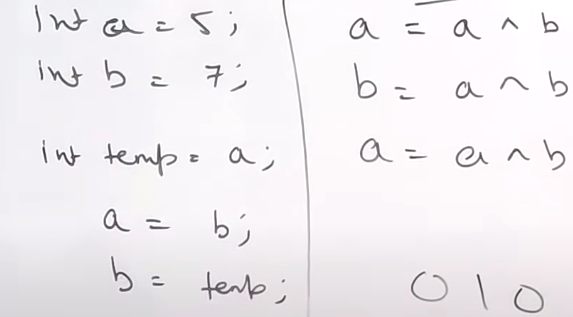 int a = 5;
int b = 7;
int temp = a;
a = b;
b = temp;
a = a ^ b
b = a ^ b
a = a ^ b
0 1 0